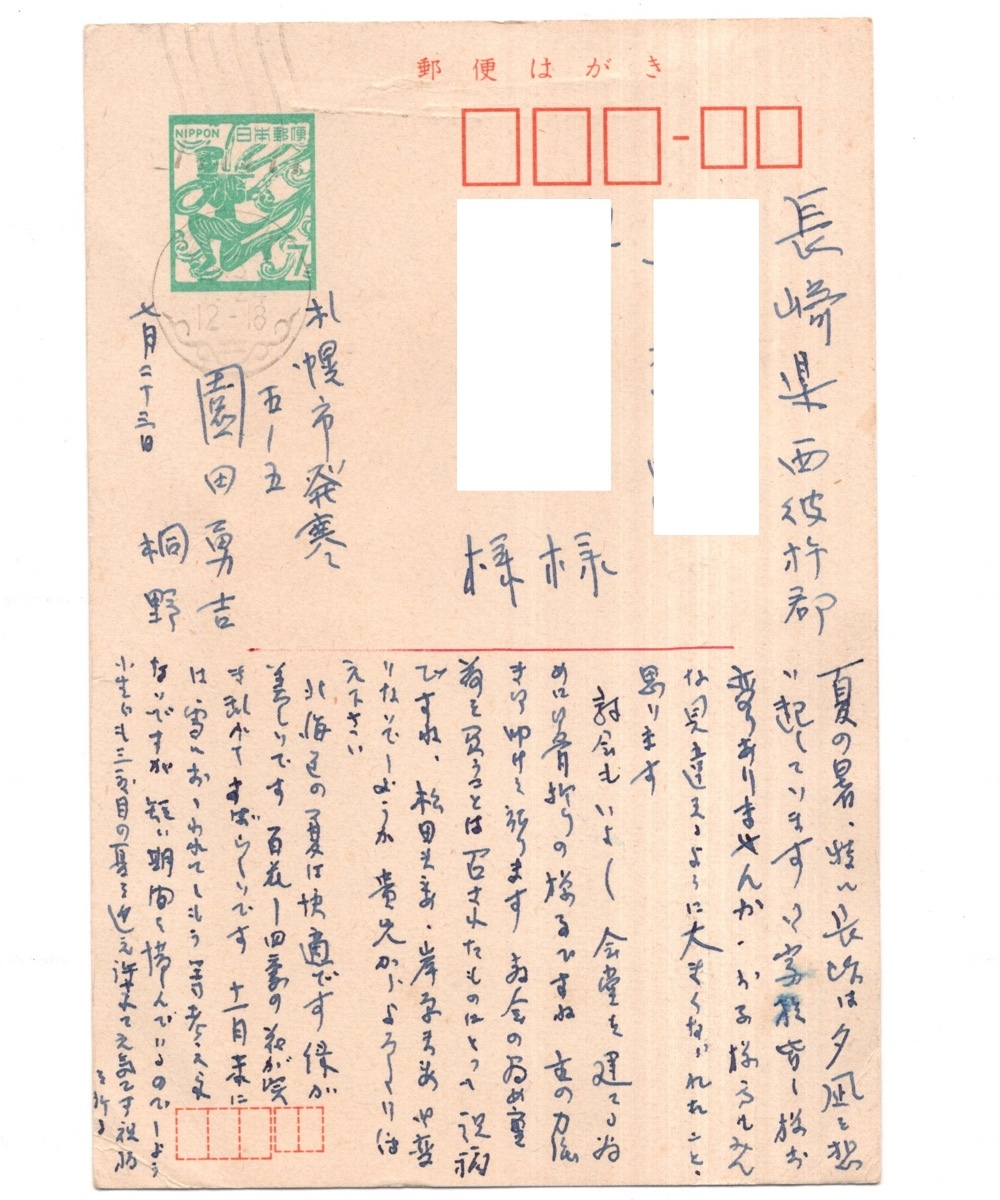 郵便はがき
NIPPON 日本郵便
7
12-18
長崎県西彼杵郡
様
様
札幌市発寒
五ノ五
園田勇吉
桐野
七月二十三日
夏の暑、特に長崎は夕凪を想
い起しています ご家族皆々様お
変りありませんか、お子様方もみん
な見違えるように大きくなられたこと、
思ります
討会もいよ〳〵会堂を建てる為
めに骨折りの様子ですね 主の力強
き御助けを祈ります
荷を負うことは召されたものにとって祝福
ですね、松田夫妻、岸
りないでしょうか 貴兄からよろしくお伝
え下さい
北海道の夏は快適です 緑が
美しいです 百花一回 の花が咲
き乱れてすばらしいです 十一月末に
は雪におゝわれてしもう 考える
ないですが短い期間を 惜んでいるのでしょう
小生らも三 目の夏を迎え 元気です 祝福
を祈る